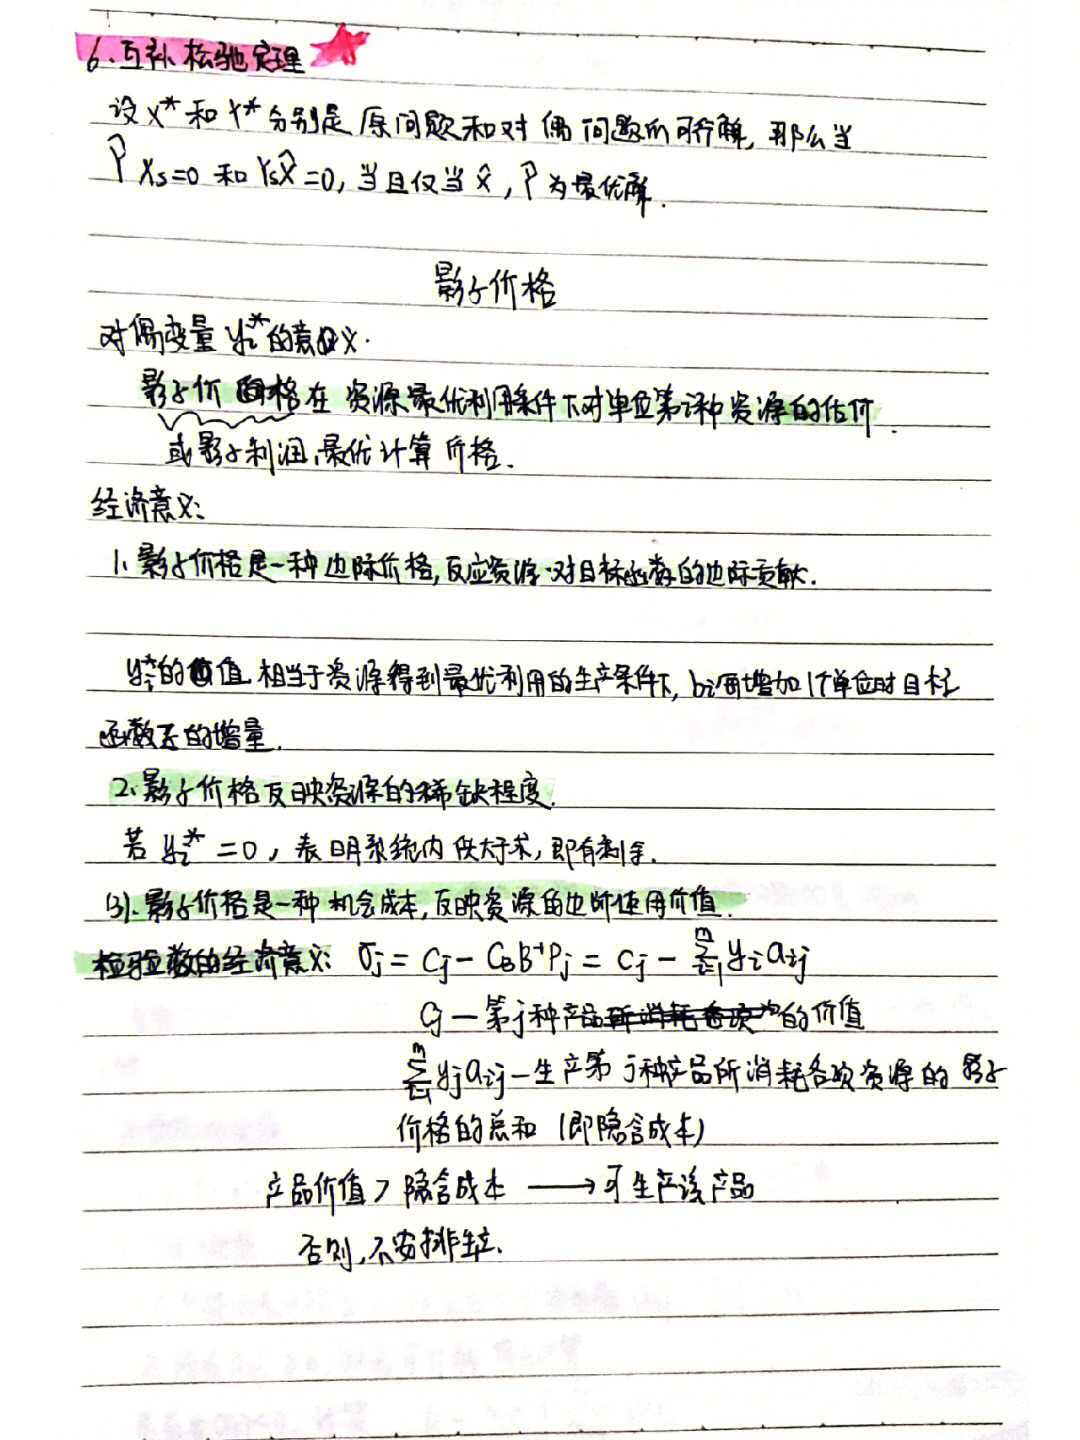 6. 互补松弛定理
设 X* 和 Y* 分别是原问题和对偶问题的可行解, 那么当
Ŷ Xs=0 和 YsX̂=0, 当且仅当 X̂, Ŷ 为最优解.
影子价格
对偶变量 yᵢ* 的意义.
影子价格在资源最优利用条件下对单位第i种资源的估价.
或影子利润、最优计算价格.
经济意义:
1. 影子价格是一种边际价格, 反应资源对目标函数的边际贡献.
yᵢ*的值相当于资源得到最优利用的生产条件下, bᵢ每增加1个单位时目标
函数Z的增量.
2. 影子价格反映资源的稀缺程度.
若 yᵢ* = 0, 表明系统内供大于求, 即有剩余.
(3). 影子价格是一种机会成本, 反映资源的边际使用价值.
检验数的经济意义: σⱼ = Cⱼ - C_B B⁻¹Pⱼ = Cⱼ - Σᵢ₌₁ᵐ yᵢaᵢⱼ
Cⱼ — 第j种产品的价值
Σᵢ₌₁ᵐ yⱼaᵢⱼ — 生产第j种产品所消耗各项资源的影子
价格的总和 (即隐含成本)
产品价值 > 隐含成本 ⟶ 可生产该产品
否则, 不安排生产.